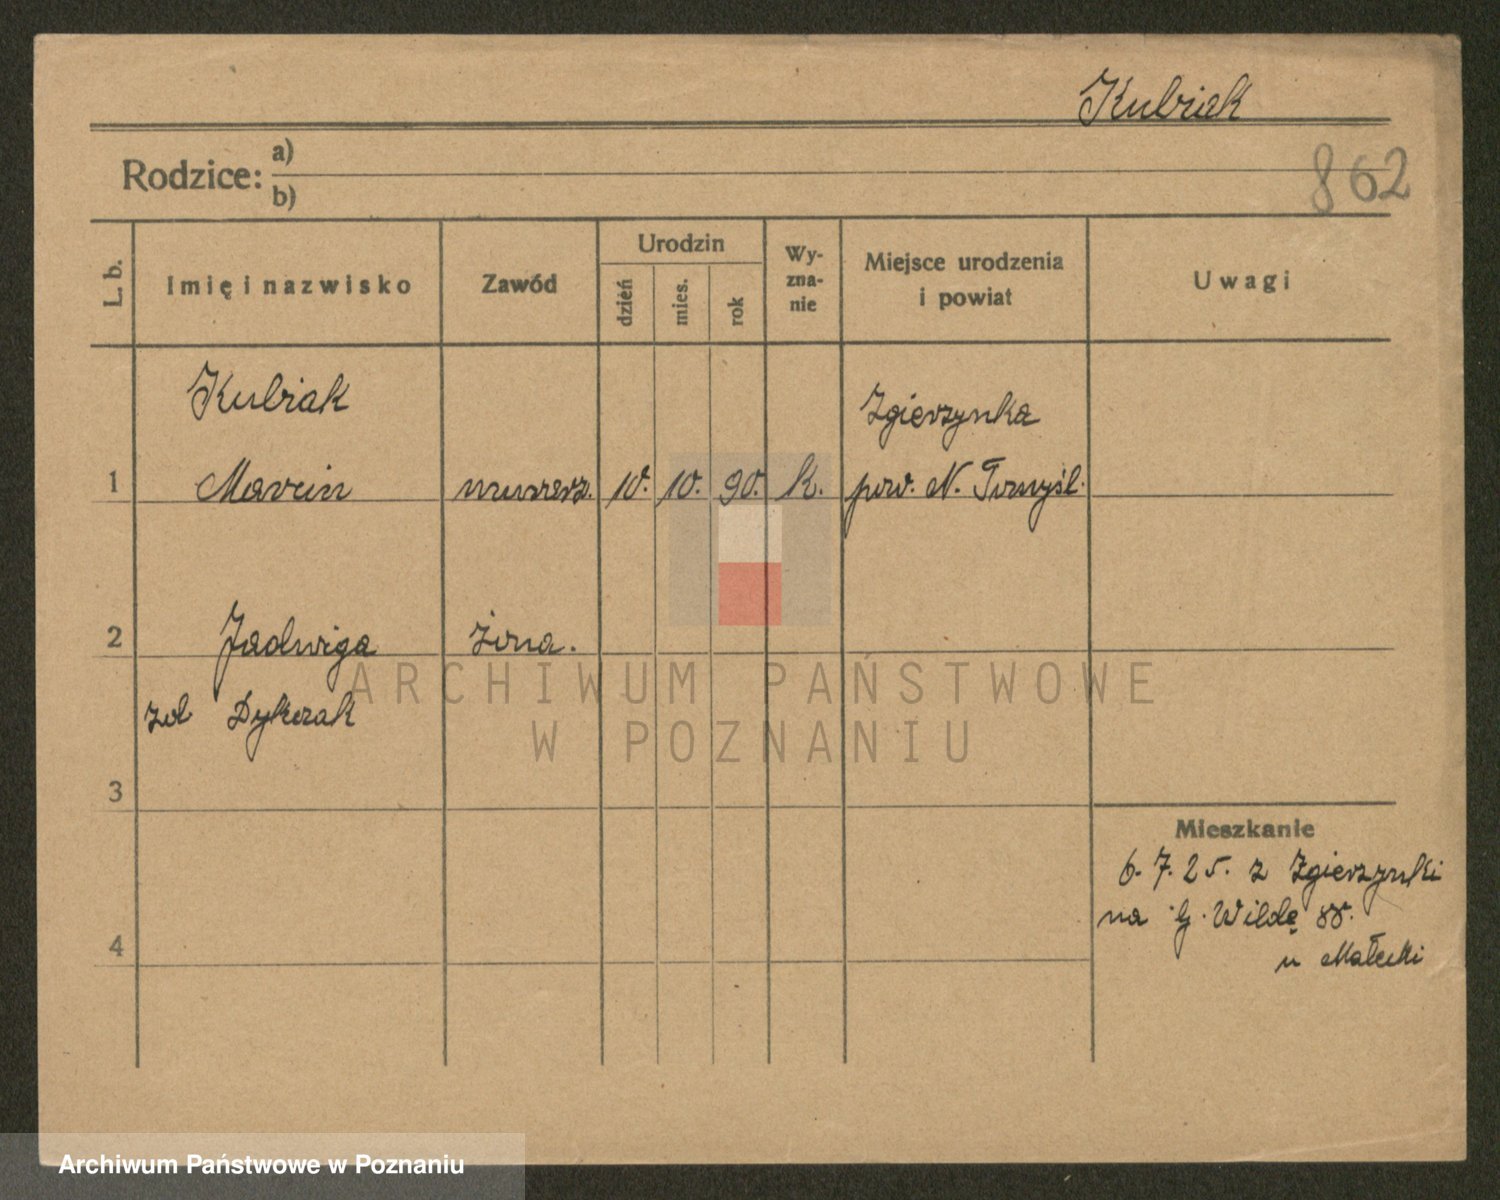 Kubiak
862
Rodzice: a)
b)
L. b.
Imię i nazwisko
Zawód
Urodzin
dzień
mies.
rok
Wy-
zna-
nie
Miejsce urodzenia
i powiat
Uwagi
Kubiak
Zgierzynka
1 Marcin murarz. 10. 10. 90. k. pow. N. Tomyśl.
2 Jadwiga żona.
zd Dykczak
3
4
Mieszkanie
6. 7. 25. z Zgierzynki
na G. Wildę
u Małecki
ARCHIWUM PAŃSTWOWE
W POZNANIU
Archiwum Państwowe w Poznaniu